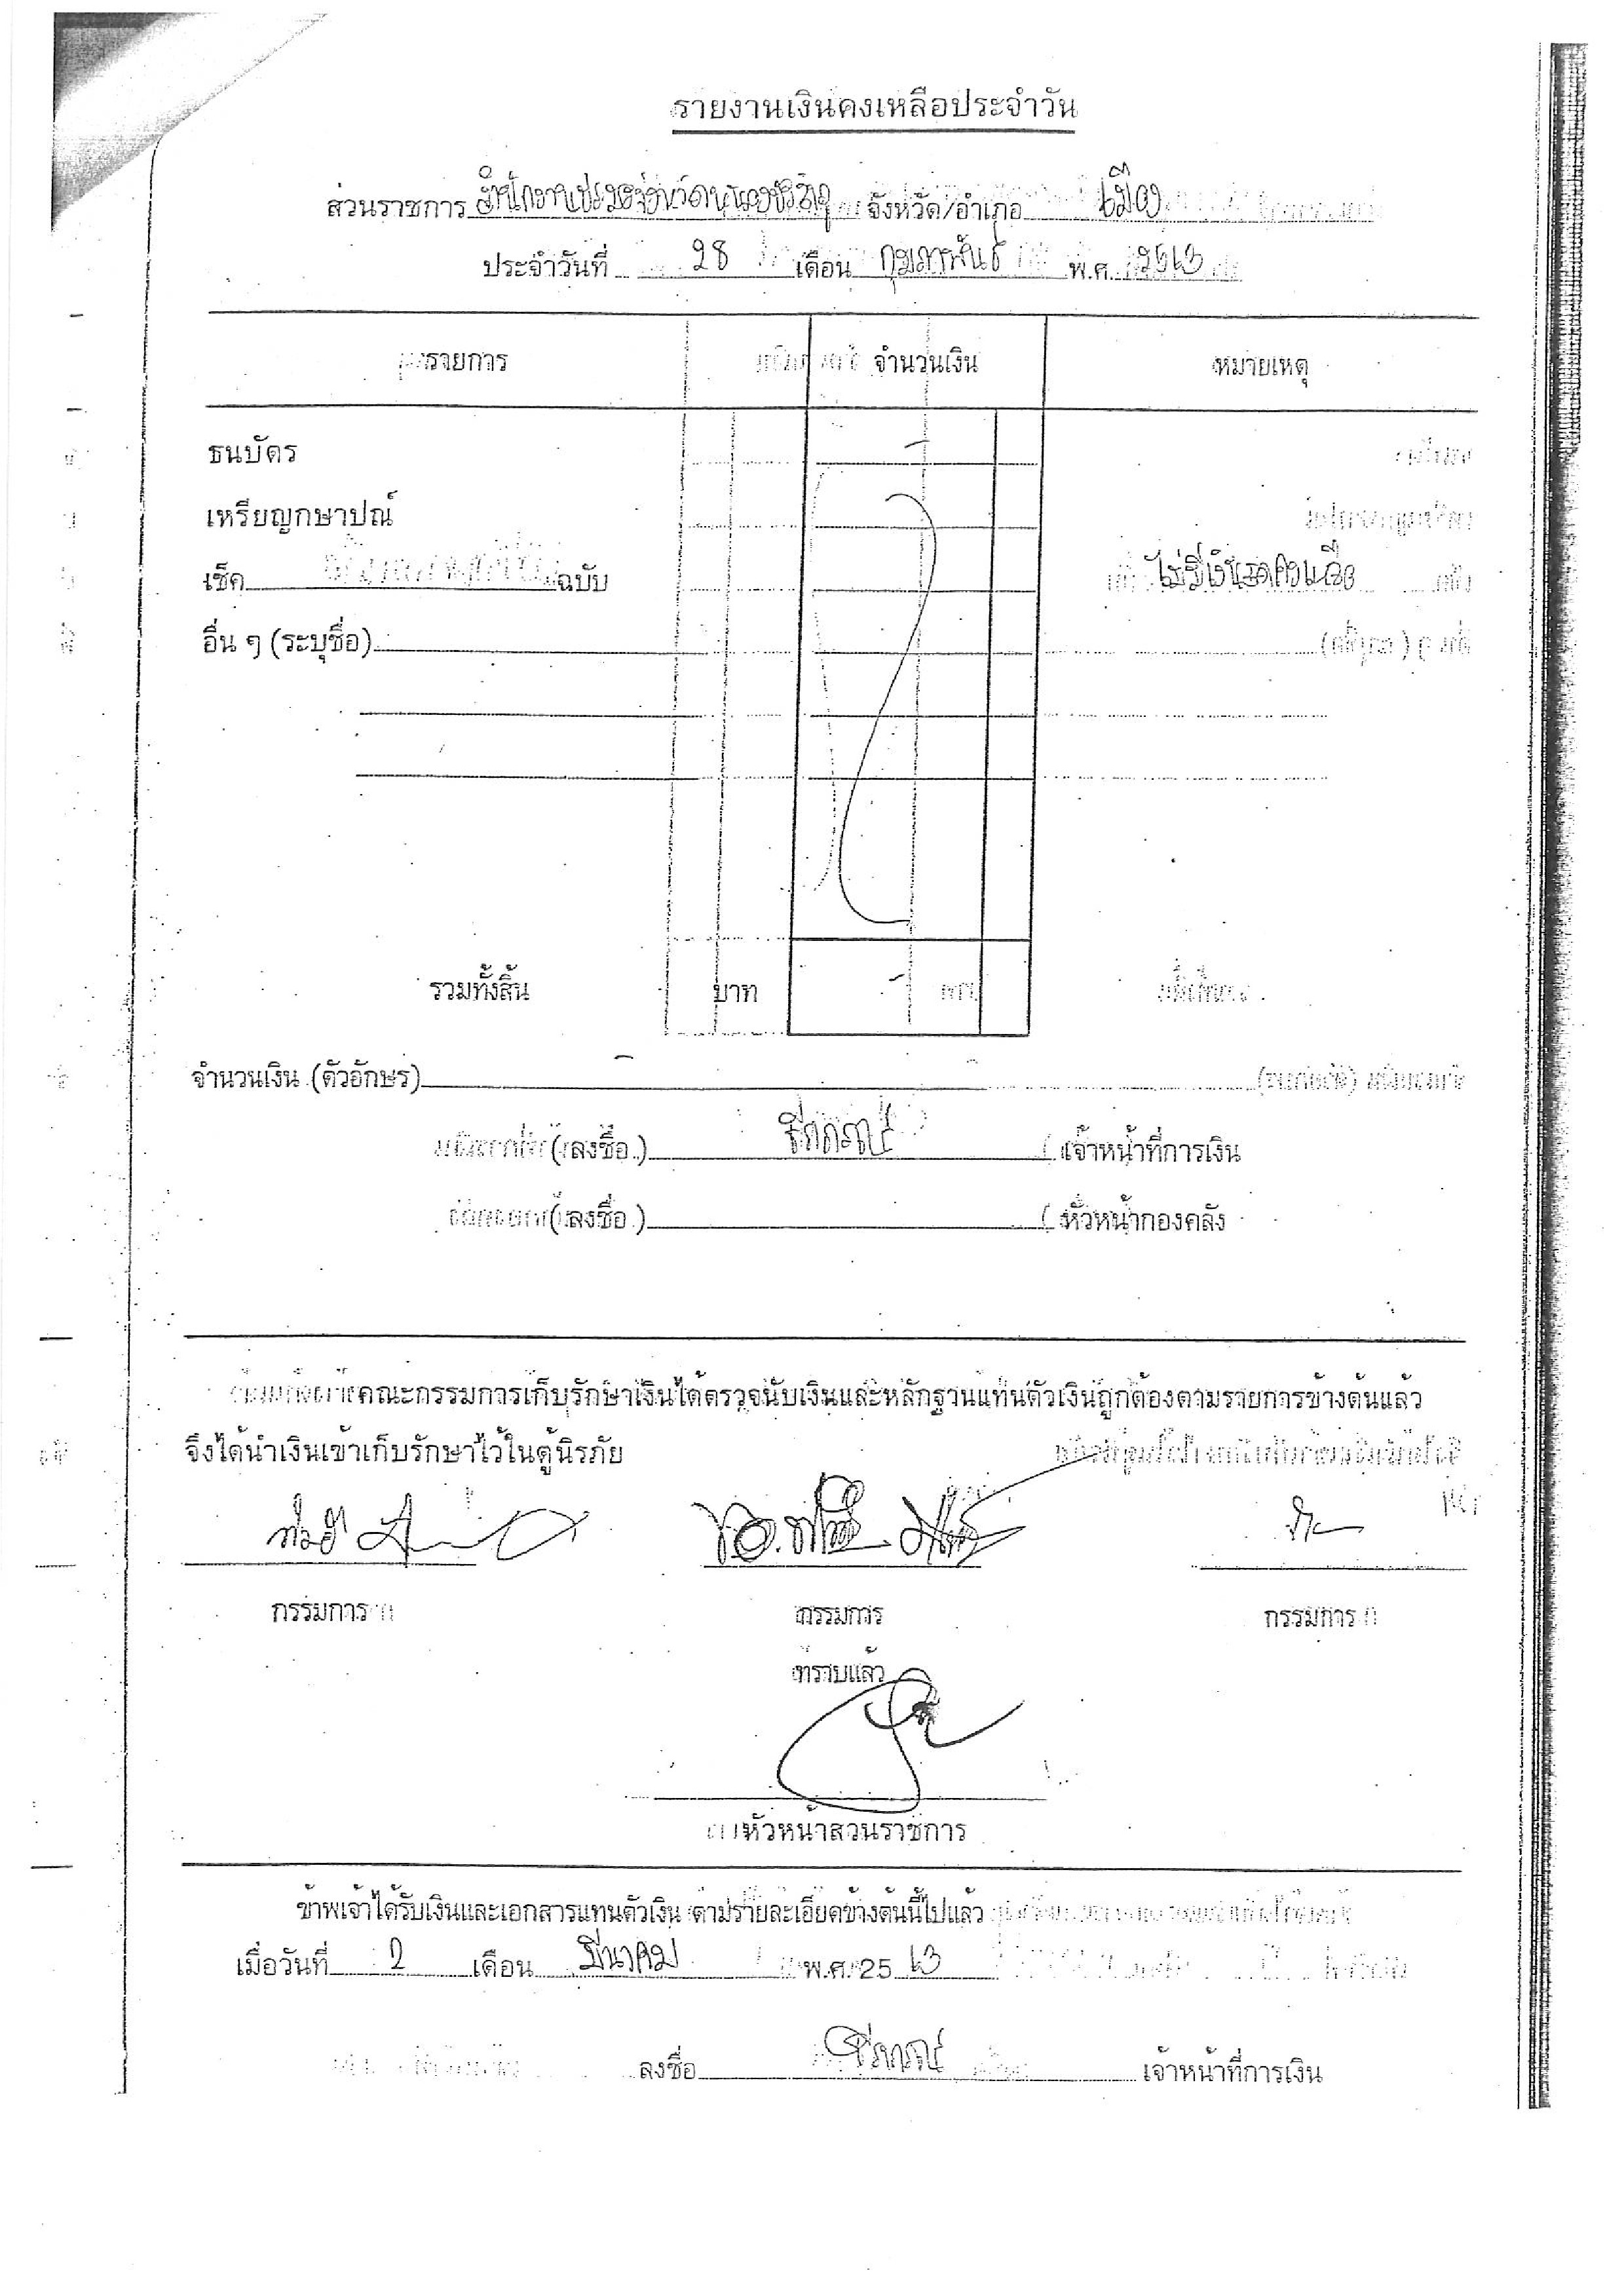 รายงานเงินคงเหลือประจำวัน
ส่วนราชการ สำนักงานประมงจังหวัด จังหวัด/อำเภอ เมือง
ประจำวันที่ 28 เดือน กุมภาพันธ์ พ.ศ. 2563
รายการ จำนวนเงิน หมายเหตุ
ธนบัตร -
เหรียญกษาปณ์
เช็ค ฉบับ ไม่มีเงินสดคงเหลือ
อื่น ๆ (ระบุชื่อ)
รวมทั้งสิ้น บาท -
จำนวนเงิน (ตัวอักษร) -
(ลงชื่อ) เจ้าหน้าที่การเงิน
(ลงชื่อ) หัวหน้ากองคลัง
คณะกรรมการเก็บรักษาเงินได้ตรวจนับเงินและหลักฐานแทนตัวเงินถูกต้องตามรายการข้างต้นแล้ว
จึงได้นำเงินเข้าเก็บรักษาไว้ในตู้นิรภัย
กรรมการ กรรมการ กรรมการ
ทราบแล้ว
หัวหน้าส่วนราชการ
ข้าพเจ้าได้รับเงินและเอกสารแทนตัวเงิน ตามรายละเอียดข้างต้นนี้ไปแล้ว
เมื่อวันที่ 2 เดือน มีนาคม พ.ศ. 25 63
ลงชื่อ เจ้าหน้าที่การเงิน